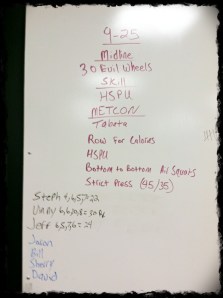 9-25
Midline
30 Evil Wheels
Skill
HSPU
METCON
Tabata
Row For Calories
HSPU
Bottom to Bottom Air Squats
Strict Press (95/35)
Steph
Jeff
Jason
Bill
David